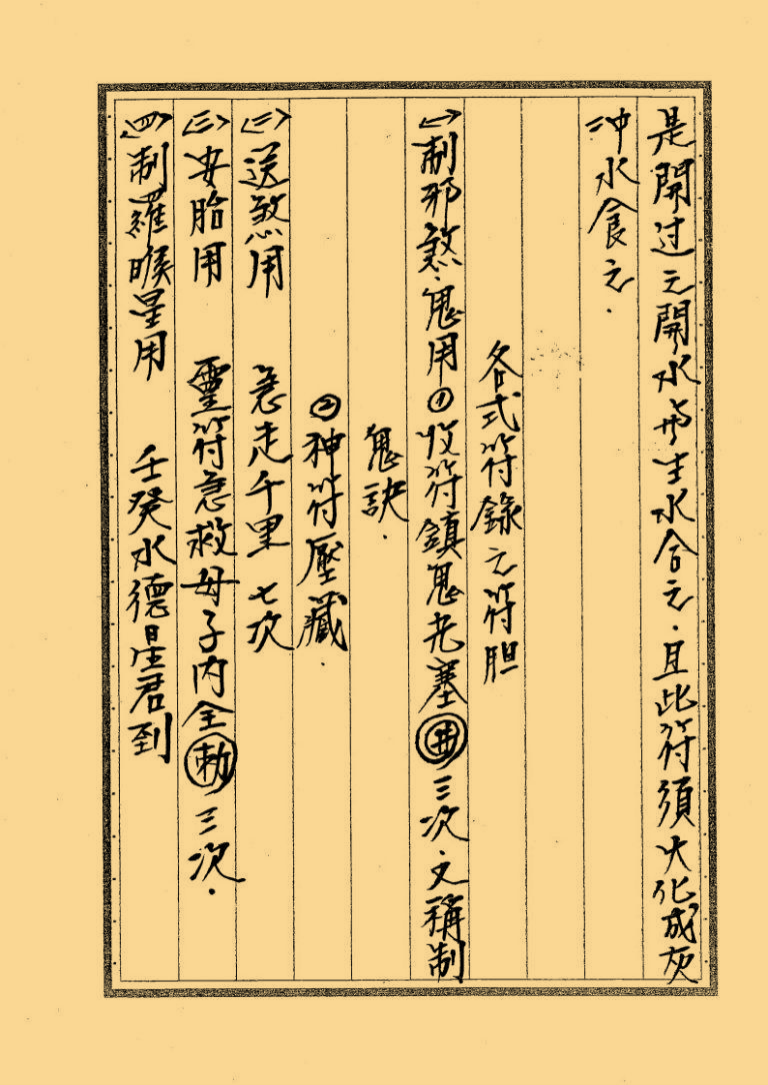 是開过之開水与生水合之．且此符須火化成灰
冲水食之．
各式符錄之符胆
㈠制邪煞．鬼用①收符鎮鬼老塞㊉三次．又稱制
鬼訣．
②神符壓藏．
㈡送煞用　急走千里　七次
㈢安胎用　靈符急救母子內全勅三次．
㈣制羅睺星用　壬癸水德星君到